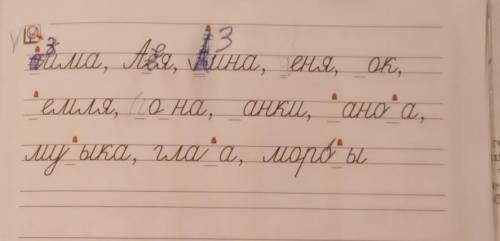 з 3
_има, А_я, _ина, _еня, _ок,
_емля, _о_на, _анки, _ано_а,
му_ыка, гла_а, моро_ы